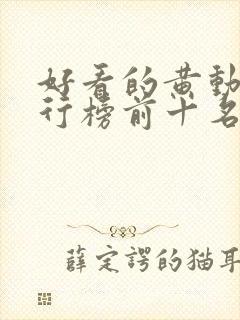 好看的黄动
行榜前十名
薛定谔的猫耳